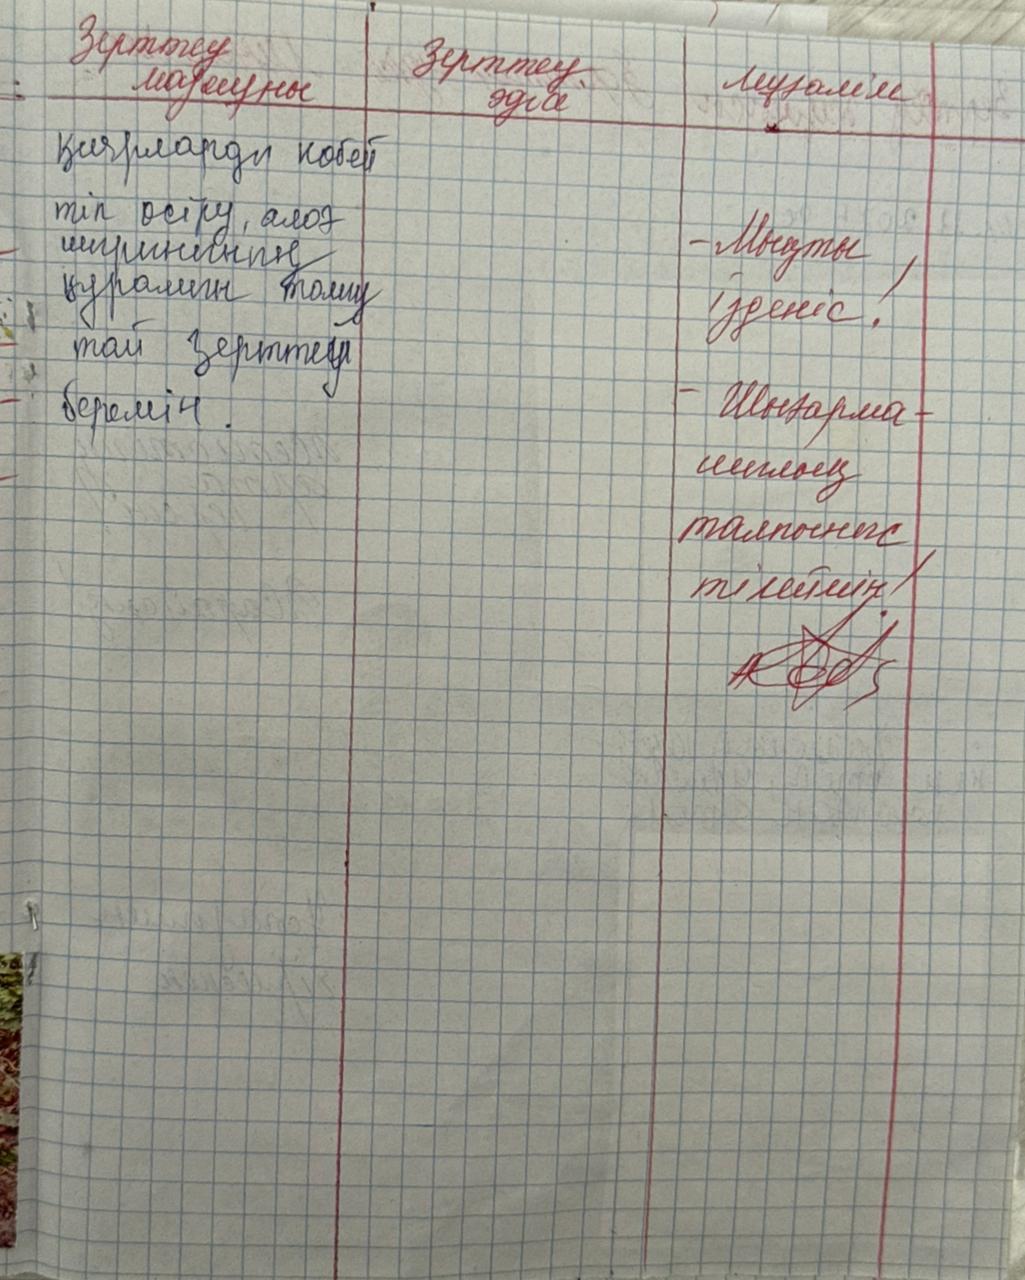 Зерттеу
мазмұны
Зерттеу
әдісі
Мұғалім
қиярларды көбей
тіп өсіру, алоэ
ширинінің
құрамын толық
тай зерттеуді
беремін.
- Мықты
ізденіс!
- Шығарма-
шылық
талпыныс
тілеймін!